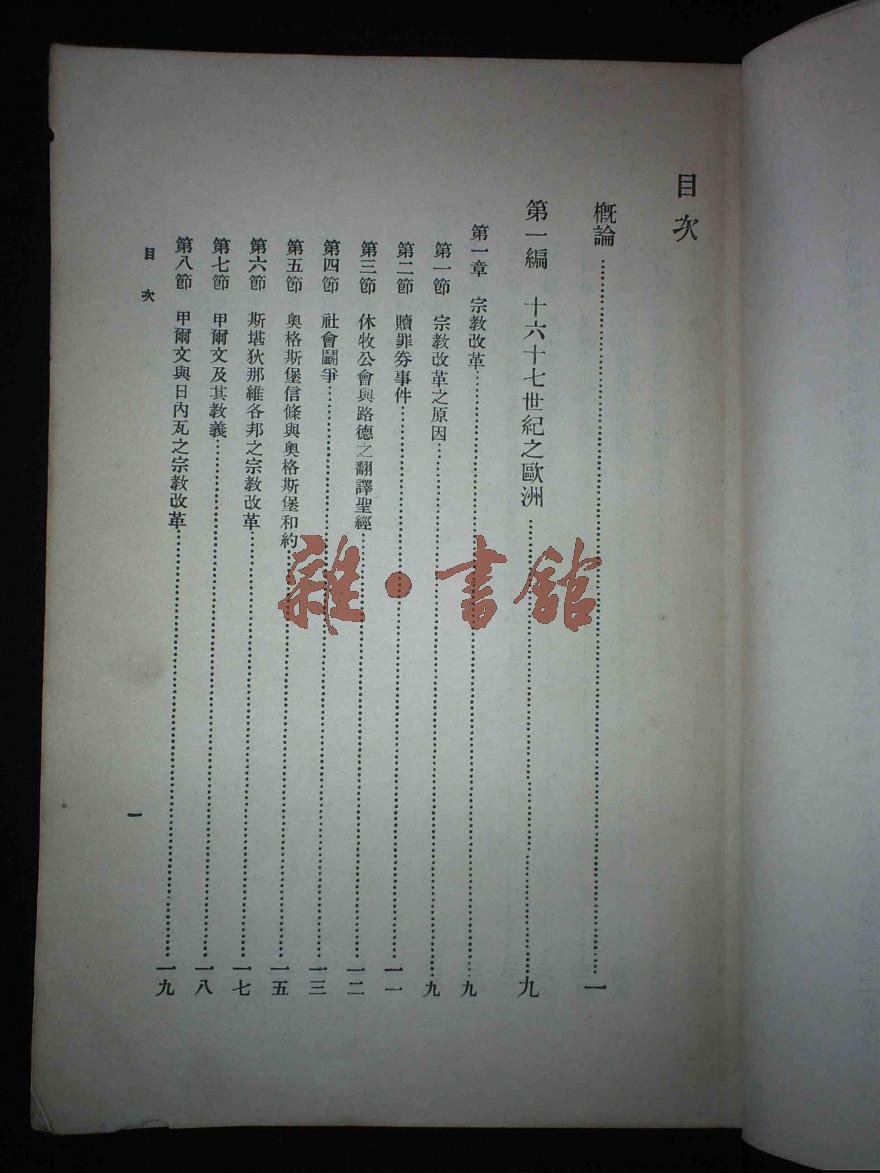 目次
概論……一
第一編　十六十七世紀之歐洲……九
第一章　宗教改革……九
第一節　宗教改革之原因……九
第二節　贖罪券事件……一一
第三節　休牧公會與路德之翻譯聖經……一二
第四節　社會鬭爭……一三
第五節　奧格斯堡信條與奧格斯堡和約……一五
第六節　斯堪狄那維各邦之宗教改革……一七
第七節　甲爾文及其教義……一八
第八節　甲爾文與日內瓦之宗教改革……一九
目次
一
雜·書館